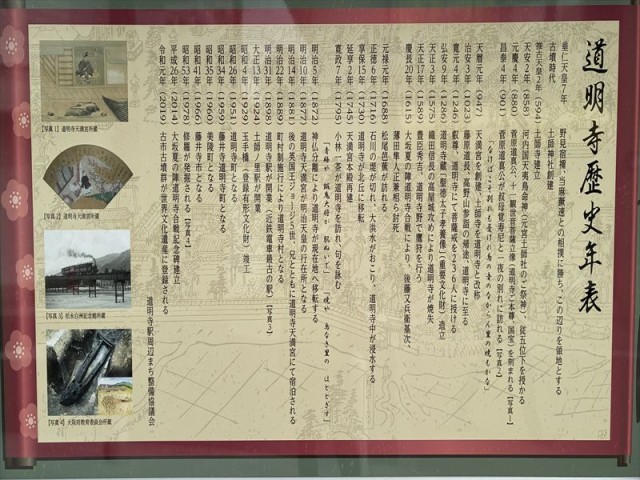 道明寺歴史年表
垂仁天皇7年 野見宿禰、当麻蹶速との相撲に勝ち、この辺りを領地とする
古墳時代 土師神社創建
推古天皇2年(594) 土師寺建立
天安2年(858) 河内国天夷鳥命神(元宮土師社のご祭神)、従五位下を授かる
元慶4年(880) 菅原道真公、十一観世音菩薩立像(道明寺ご本尊、国宝)を刻まれる【写真1】
昌泰4年(901) 菅原道真公が叔母覚寿尼と一夜の別れに訪れる【写真2】
「なけばこそ 別れも憂けれ 鶏の音の なからん里の 暁もがな」
天暦元年(947) 天満宮を創建、土師寺を道明寺と改称
治安3年(1023) 藤原道長、高野山参詣の帰途、道明寺に至る
寛元4年(1246) 叡尊、道明寺にて菩薩戒を236人に授ける
弘安9年(1286) 道明寺蔵『聖徳太子孝養像』(重要文化財)造立
天正3年(1575) 織田信長の高屋城攻めにより道明寺が焼失
天正17年(1587) 豊臣秀吉、道明寺野で鷹狩を行う
慶長20年(1615) 大坂夏の陣、道明寺合戦により、後藤又兵衛基次、
薄田隼人正兼相ら討死
元禄元年(1688) 松尾芭蕉が訪れる
正徳6年(1716) 石川の堤が切れ、大洪水がおこり、道明寺中が浸水する
享保15年(1730) 道明寺が北丘に移転
延享2年(1745) 天満宮本殿再建
寛政7年(1795) 小林一茶が道明寺を訪れ、句を詠む
明治5年(1872) 神仏分離により道明寺が現在地へ移転する
明治10年(1877) 道明寺天満宮が明治天皇の行在所となる
明治14年(1881) 後の英国王ジョージ5世、兄とともに道明寺天満宮にて宿泊される
明治22年(1889) 町村制施行により道明寺村となる
明治31年(1898) 道明寺駅が開業(近鉄電車最古の駅)【写真3】
大正13年(1924) 土師ノ里駅が開業
昭和4年(1929) 玉手橋(登録有形文化財)竣工
昭和26年(1951) 道明寺町となる
昭和34年(1959) 藤井寺道明寺町となる
昭和35年(1960) 美陵町となる
昭和41年(1966) 藤井寺市となる
昭和53年(1978) 修羅が発掘される【写真4】
平成26年(2014) 大坂夏の陣道明寺合戦記念碑建立
令和元年(2019) 古市古墳群が世界文化遺産に登録される
道明寺駅周辺まち整備協議会
【写真1】道明寺天満宮所蔵
【写真2】道明寺天満宮所蔵
【写真3】松永白洲記念館所蔵
【写真4】大阪府教育委員会所蔵